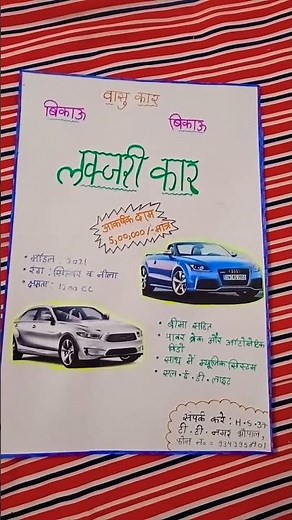 वासु कार
बिकाऊ
बिकाऊ
लक्जरी कार
आकर्षक दाम
5,00,000/- मात्र
• मॉडल : 2021
• रंग : सिल्वर व नीला
• क्षमता : 1200 CC
• बीमा सहित
• पावर ब्रेक और ऑटोमैटिक
विंडो
• साथ में म्यूजिक सिस्टम
• एल.ई.डी. लाइट
संपर्क करे : H.S. 37
टी.टी. नगर भोपाल,
फोन नं० =